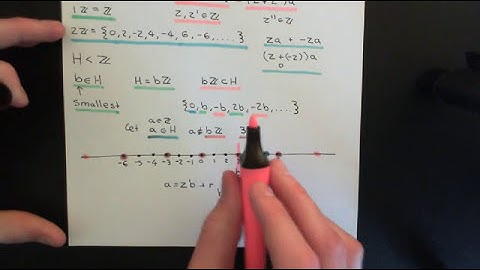 1ℤ = ℤ z, z' ∈ ℤ z'' ∈ ℤ
2ℤ = {0, 2, -2, 4, -4, 6, -6, ....} za + -za
H < ℤ (z + (-z))a
0
b ∈ H H = bℤ bℤ ⊂ H
Smallest {0, b, -b, 2b, -2b, ....}
a ∈ ℤ
Let a ∈ H a ∉ bℤ
-6 -5 -4 -3 -2 -1 0 1 2
a = zb + r